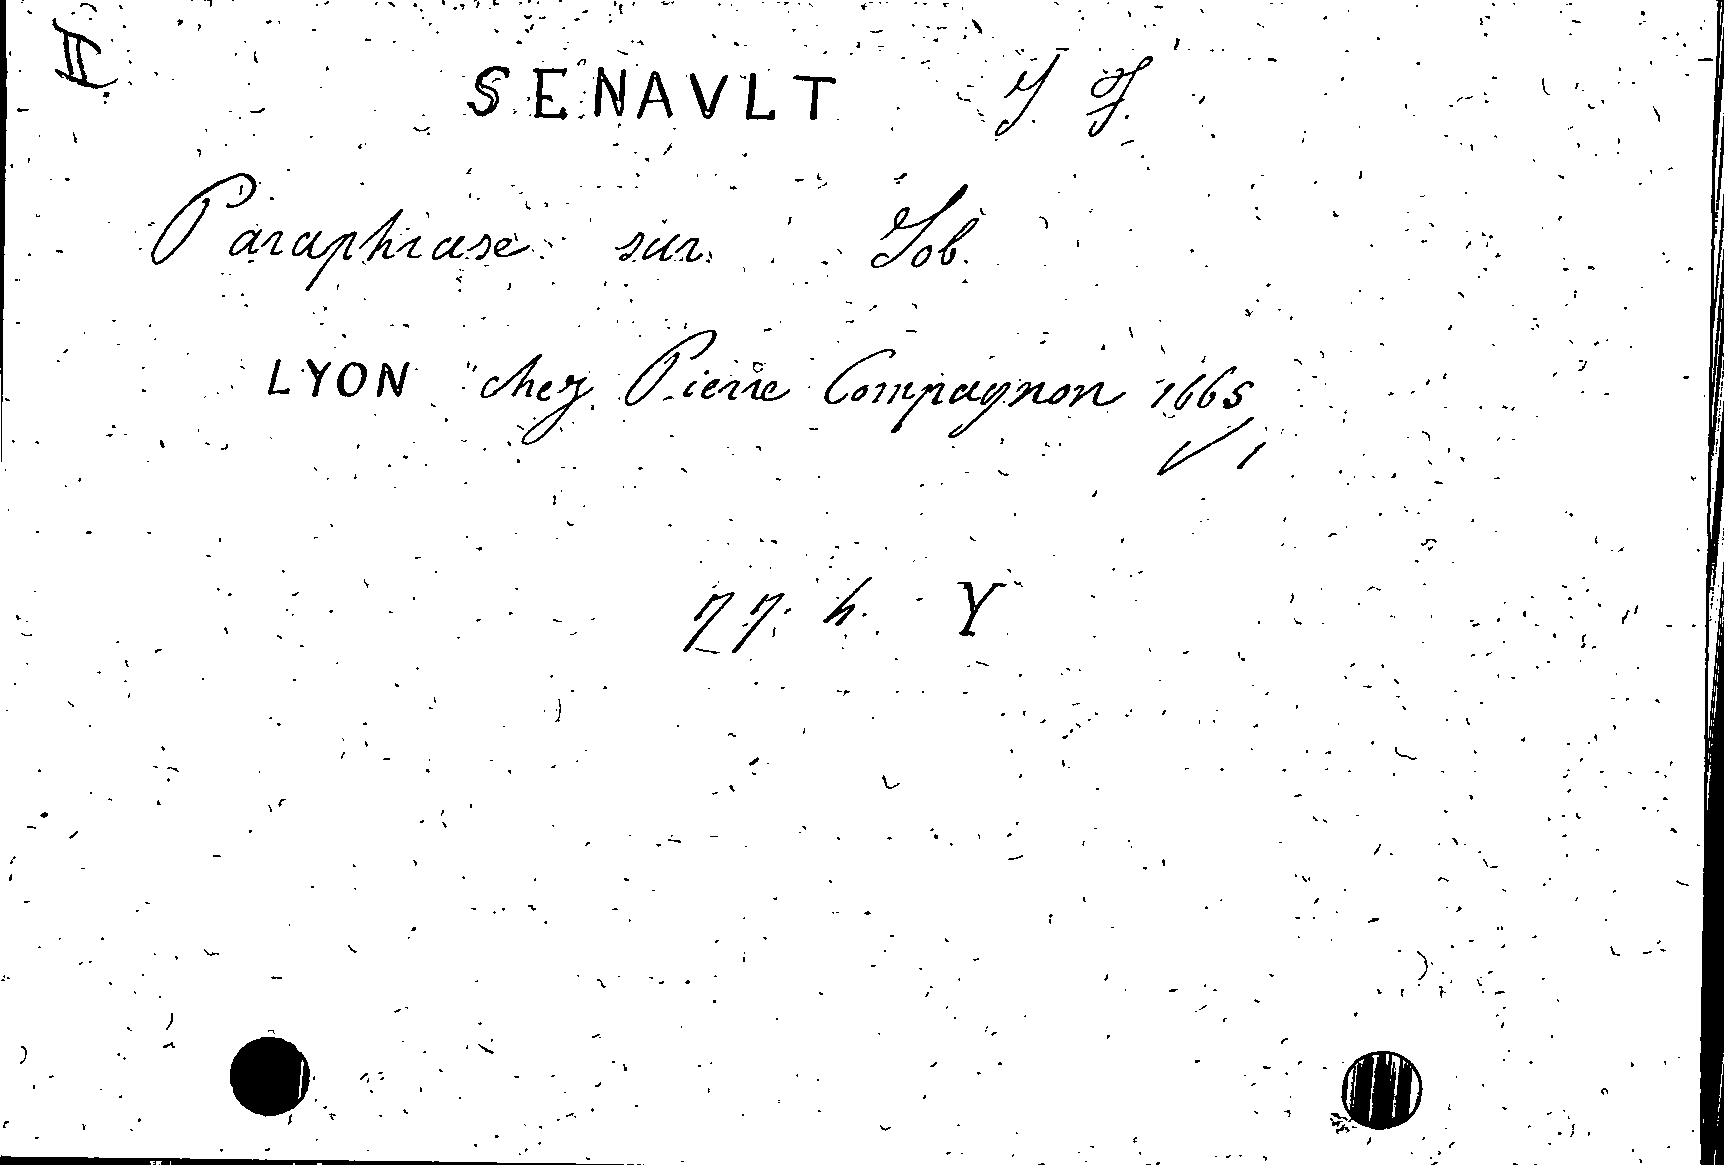 II
SENAVLT J F.
Paraphrase sur Job.
LYON chez Pierre Compagnon 1665
77. h. Y